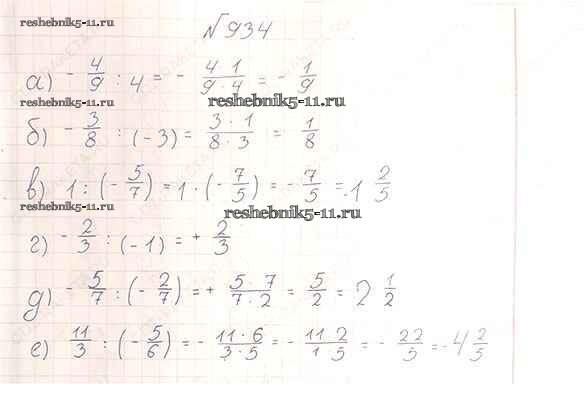 reshebnik5-11.ru
№934
а) - 4/9 : 4 = - 4·1/9·4 = - 1/9
reshebnik5-11.ru
reshebnik5-11.ru
б) - 3/8 : (-3) = 3·1/8·3 = 1/8
в) 1 : (- 5/7) = 1 · (- 7/5) = - 7/5 = -1 2/5
reshebnik5-11.ru
reshebnik5-11.ru
г) - 2/3 : (-1) = + 2/3
д) - 5/7 : (- 2/7) = + 5·7/7·2 = 5/2 = 2 1/2
е) 11/3 : (- 5/6) = - 11·6/3·5 = - 11 2/1 5 = - 22/5 = -4 2/5